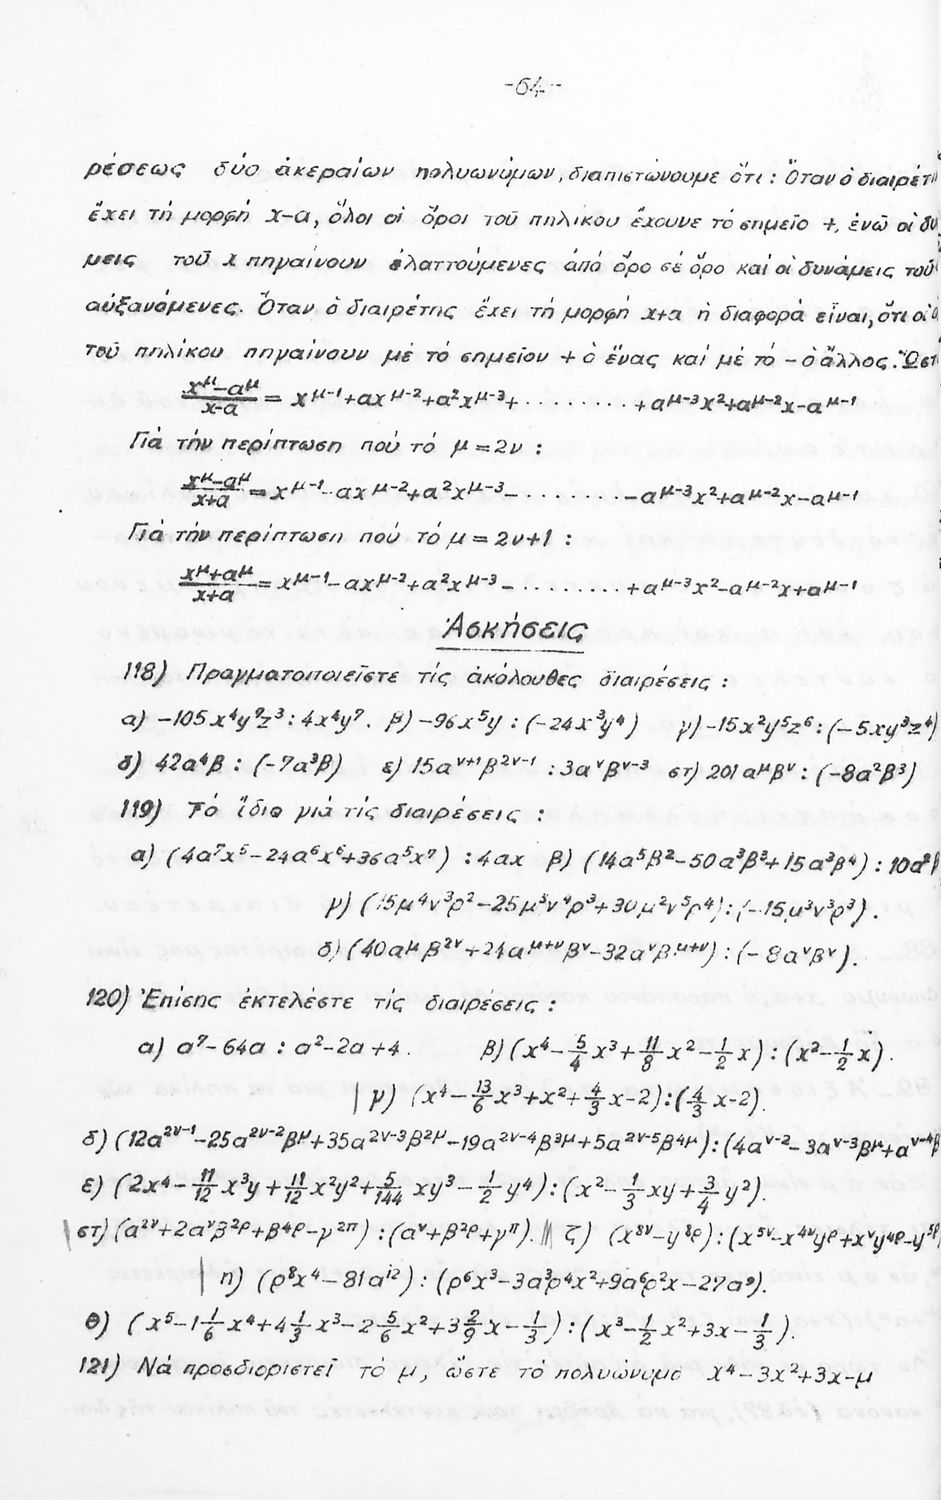 -64-
ρέσεως δύο ἀκεραίων πολυωνύμων, διαπιστώνουμε ὅτι: Ὅταν ὁ διαιρέτ
ἔχει τή μορφή x-a, ὅλοι οἱ ὅροι τοῦ πηλίκου ἔχουνε τό σημεῖο +, ἐνῶ οἱ δυ
μεις τοῦ x πηγαίνουν ἐλαττούμενες ἀπό ὅρο σέ ὅρο καί οἱ δυνάμεις τοῦ
αὐξανόμενες. Ὅταν ὁ διαιρέτης ἔχει τή μορφή x+a ἡ διαφορά εἶναι, ὅτι οἱ
τοῦ πηλίκου πηγαίνουν μέ τό σημεῖον + ὁ ἕνας καί μέ τό - ὁ ἄλλος. Ὥστ
(x^μ-a^μ)/(x-a) = x^μ-1+ax^μ-2+a²x^μ-3+.........+a^μ-3x²+a^μ-2x-a^μ-1
Γιά τήν περίπτωση πού τό μ=2ν :
(x^μ-a^μ)/(x+a) = x^μ-1-ax^μ-2+a²x^μ-3-........-a^μ-3x²+a^μ-2x-a^μ-1
Γιά τήν περίπτωση πού τό μ=2ν+1 :
(x^μ+a^μ)/(x+a) = x^μ-1-ax^μ-2+a²x^μ-3-........+a^μ-3x²-a^μ-2x+a^μ-1
Ἀσκήσεις
118) Πραγματοποιεῖστε τίς ἀκόλουθες διαιρέσεις :
α) -105x⁴y⁹z³:4x⁴y⁷. β) -96x⁵y : (-24x³y⁴) γ) -15x²y⁵z⁶:(-5xy³z⁴)
δ) 42a⁴β : (-7a³β) ε) 15a^ν+1β^2ν-1 :3a^νβ^ν-3 στ) 201a^μβ^ν : (-8a²β³)
119) Τό ἴδιο γιά τίς διαιρέσεις :
α) (4a⁷x⁵-24a⁶x⁶+36a⁵x⁷) :4ax β) (14a⁵β²-50a³β³+15a³β⁴) : 10a²β
γ) (15μ⁴ν³ρ²-25μ³ν⁴ρ³+30μ²ν⁵ρ⁴):(-15μ³ν³ρ³).
δ) (40a^μβ^2ν+24a^μ+νβ^ν-32a^νβ^μ+ν) : (-8a^νβ^ν).
120) Ἐπίσης ἐκτελέστε τίς διαιρέσεις :
α) a⁷-64a : a²-2a+4. β) (x⁴-5/4x³+11/8x²-1/2x) : (x²-1/2x).
γ) (x⁴-13/6x³+x²+4/3x-2):(4/3x-2).
δ) (12a^2ν-1-25a^2ν-2β^μ+35a^2ν-3β^2μ-19a^2ν-4β^3μ+5a^2ν-5β^4μ):(4a^ν-2-3a^ν-3β^μ+a^ν-4β
ε) (2x⁴-11/12x³y+11/12x²y²+5/144xy³-1/2y⁴):(x²-1/3xy+3/4y²).
στ) (a^2ν+2a^νβ^2ρ+β^4ρ-γ^2π) : (a^ν+β^2ρ+γ^π). ζ) (x^8ν-y^8ρ) : (x^5ν-x^4νy^ρ+x^νy^4ρ-y^5ρ
η) (ρ⁸x⁴-81a¹²) : (ρ⁶x³-3a³ρ⁴x²+9a⁶ρ²x-27a⁹).
θ) (x⁵-1 1/6x⁴+4 1/3x³-2 5/6x²+3 2/9x-1/3) : (x³-1/2x²+3x-1/3).
121) Νά προσδιοριστεῖ τό μ, ὥστε τό πολυώνυμο x⁴-3x²+3x-μ